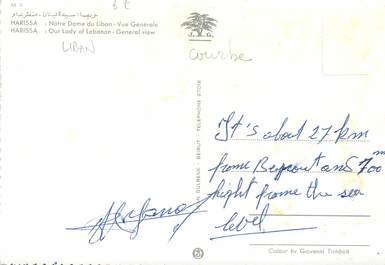 6 €
HARISSA : Notre Dame du Liban - Vue Générale
HARISSA : Our Lady of Lebanon - General view
LIBAN
J. G.
courbe
GULBENK - BEIRUT - TELEPHONE 27018
It's about 27 km
frome Beyrout and 700 m
hight frome the sea
level
Colour by Giovanni Trimboli